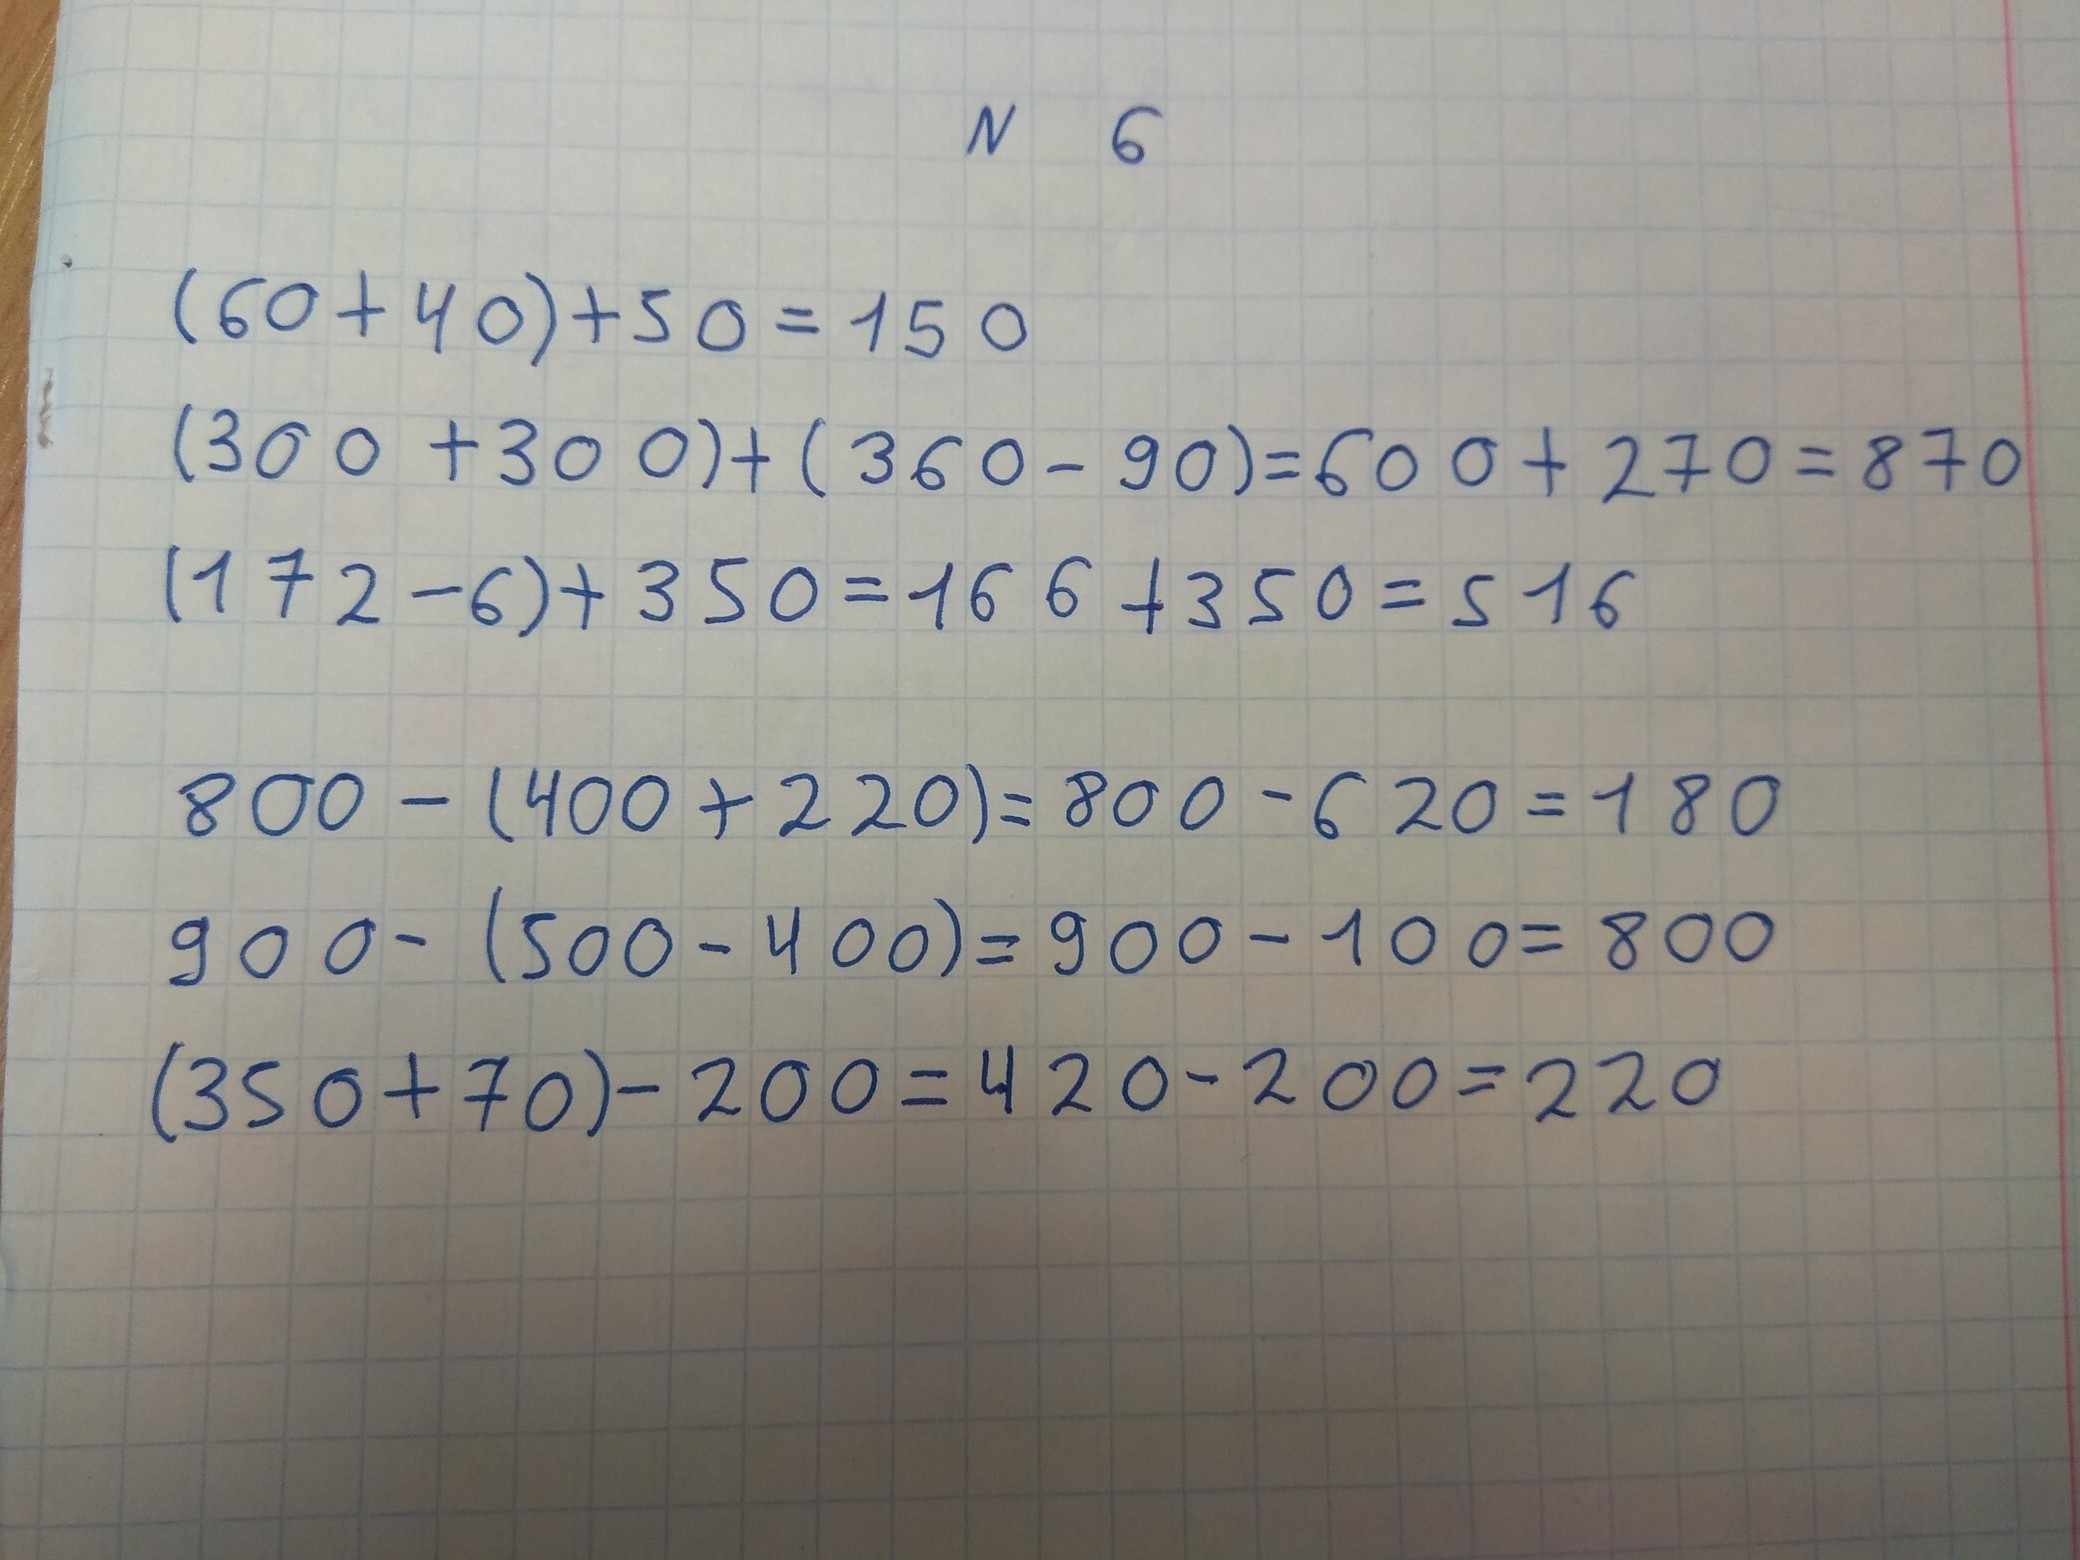 N 6
(60+40)+50=150
(300+300)+(360-90)=600+270=870
(172-6)+350=166+350=516
800-(400+220)=800-620=180
900-(500-400)=900-100=800
(350+70)-200=420-200=220